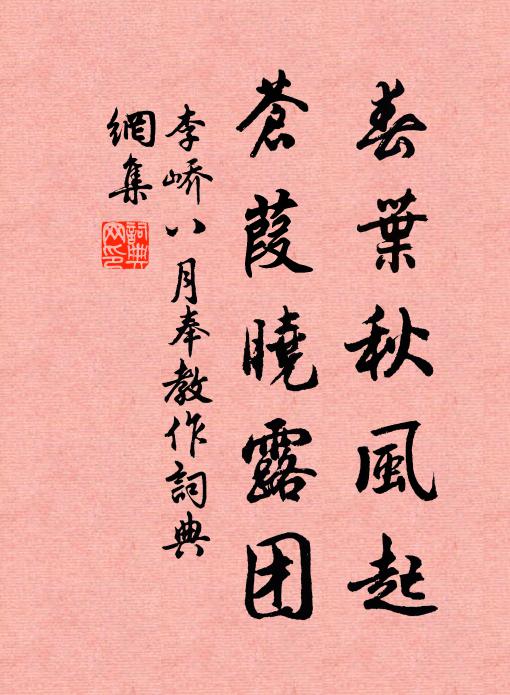 春葉秋風起
蒼葭曉露团
李嶠八月奉教作詞典
網集
詞典
网印